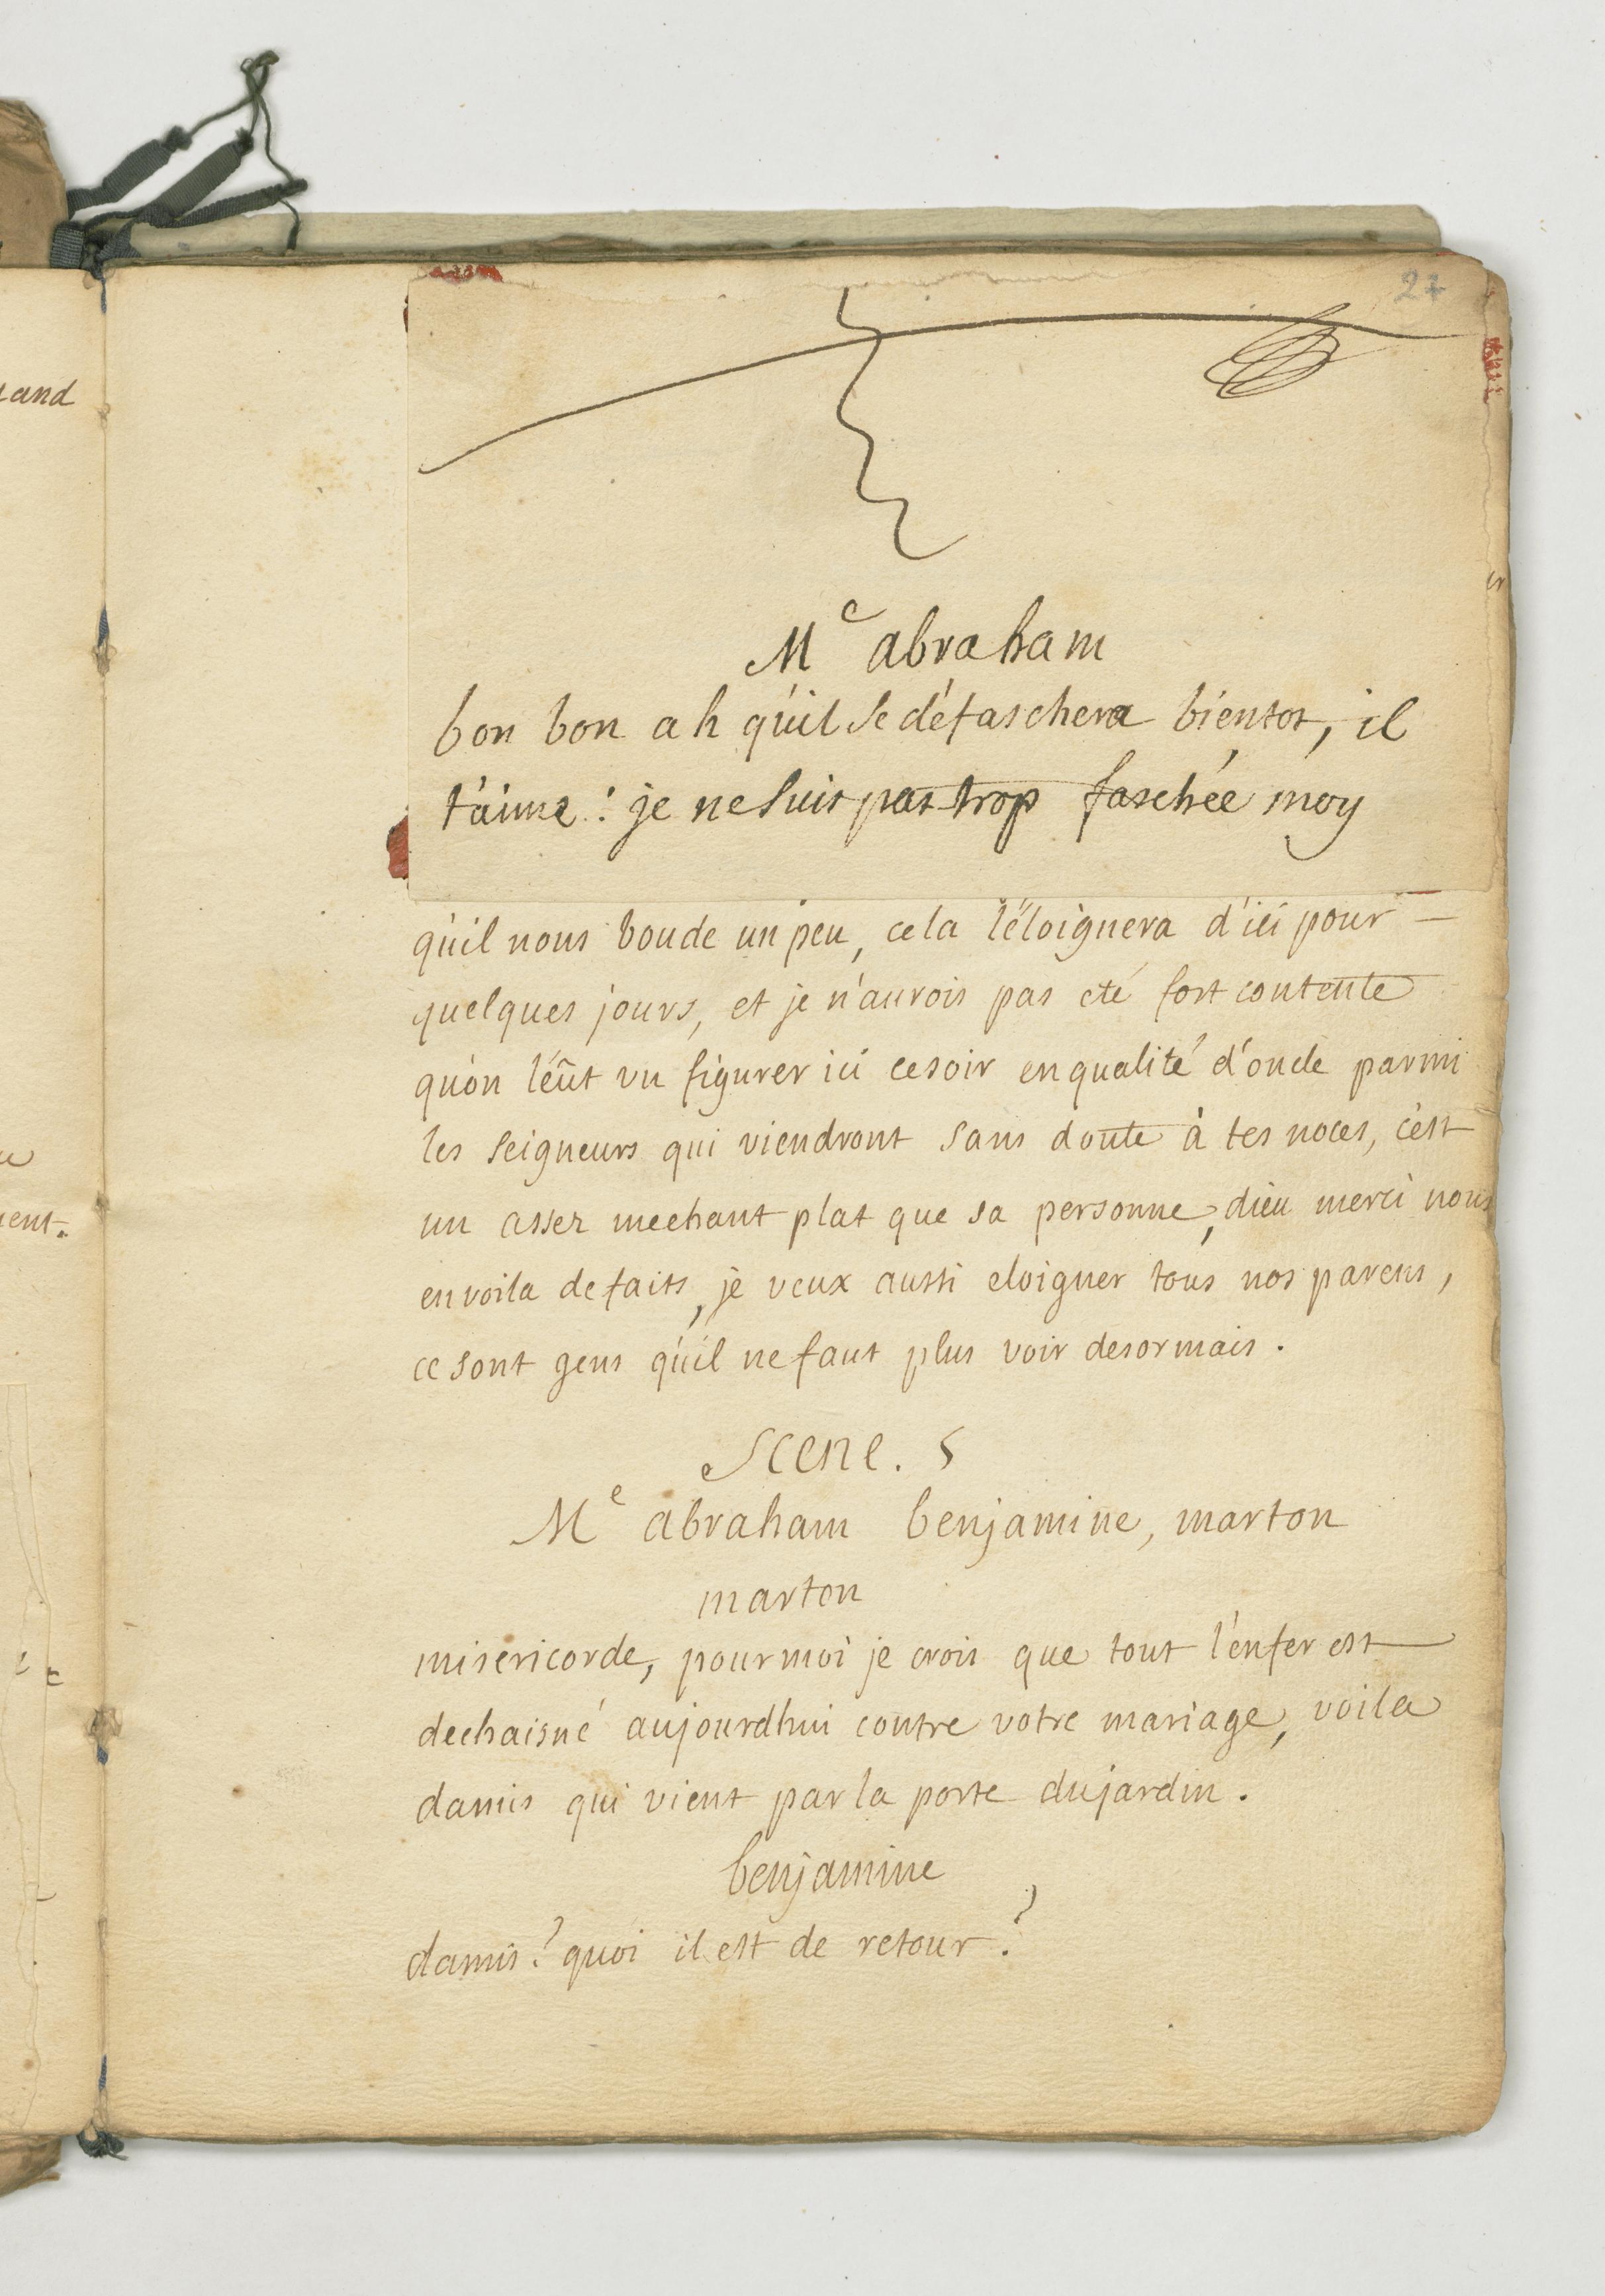 27
and
ent.
Me abraham
bon bon ah qu'il se défaschera bientot, il
t'aime : je ne suis pas trop faschée moy
qu'il nous boude un peu, cela l'éloignera d'ici pour —
quelques jours, et je n'aurois pas eté fort contente
qu'on l'eût vu figurer ici ce soir en qualité d'oncle parmi
les seigneurs qui viendront sans doute à tes noces, c'est
un assez mechant plat que sa personne, dieu merci nous
en voila defaits, je veux aussi eloigner tous nos parens,
ce sont gens qu'il ne faut plus voir desormais.
Scene. 5
Me abraham benjamine, marton
marton
misericorde, pour moi je crois que tout l'enfer est
dechaisné aujourdhui contre votre mariage, voila
damis qui vient par la porte du jardin.
benjamine
damis? quoi il est de retour?